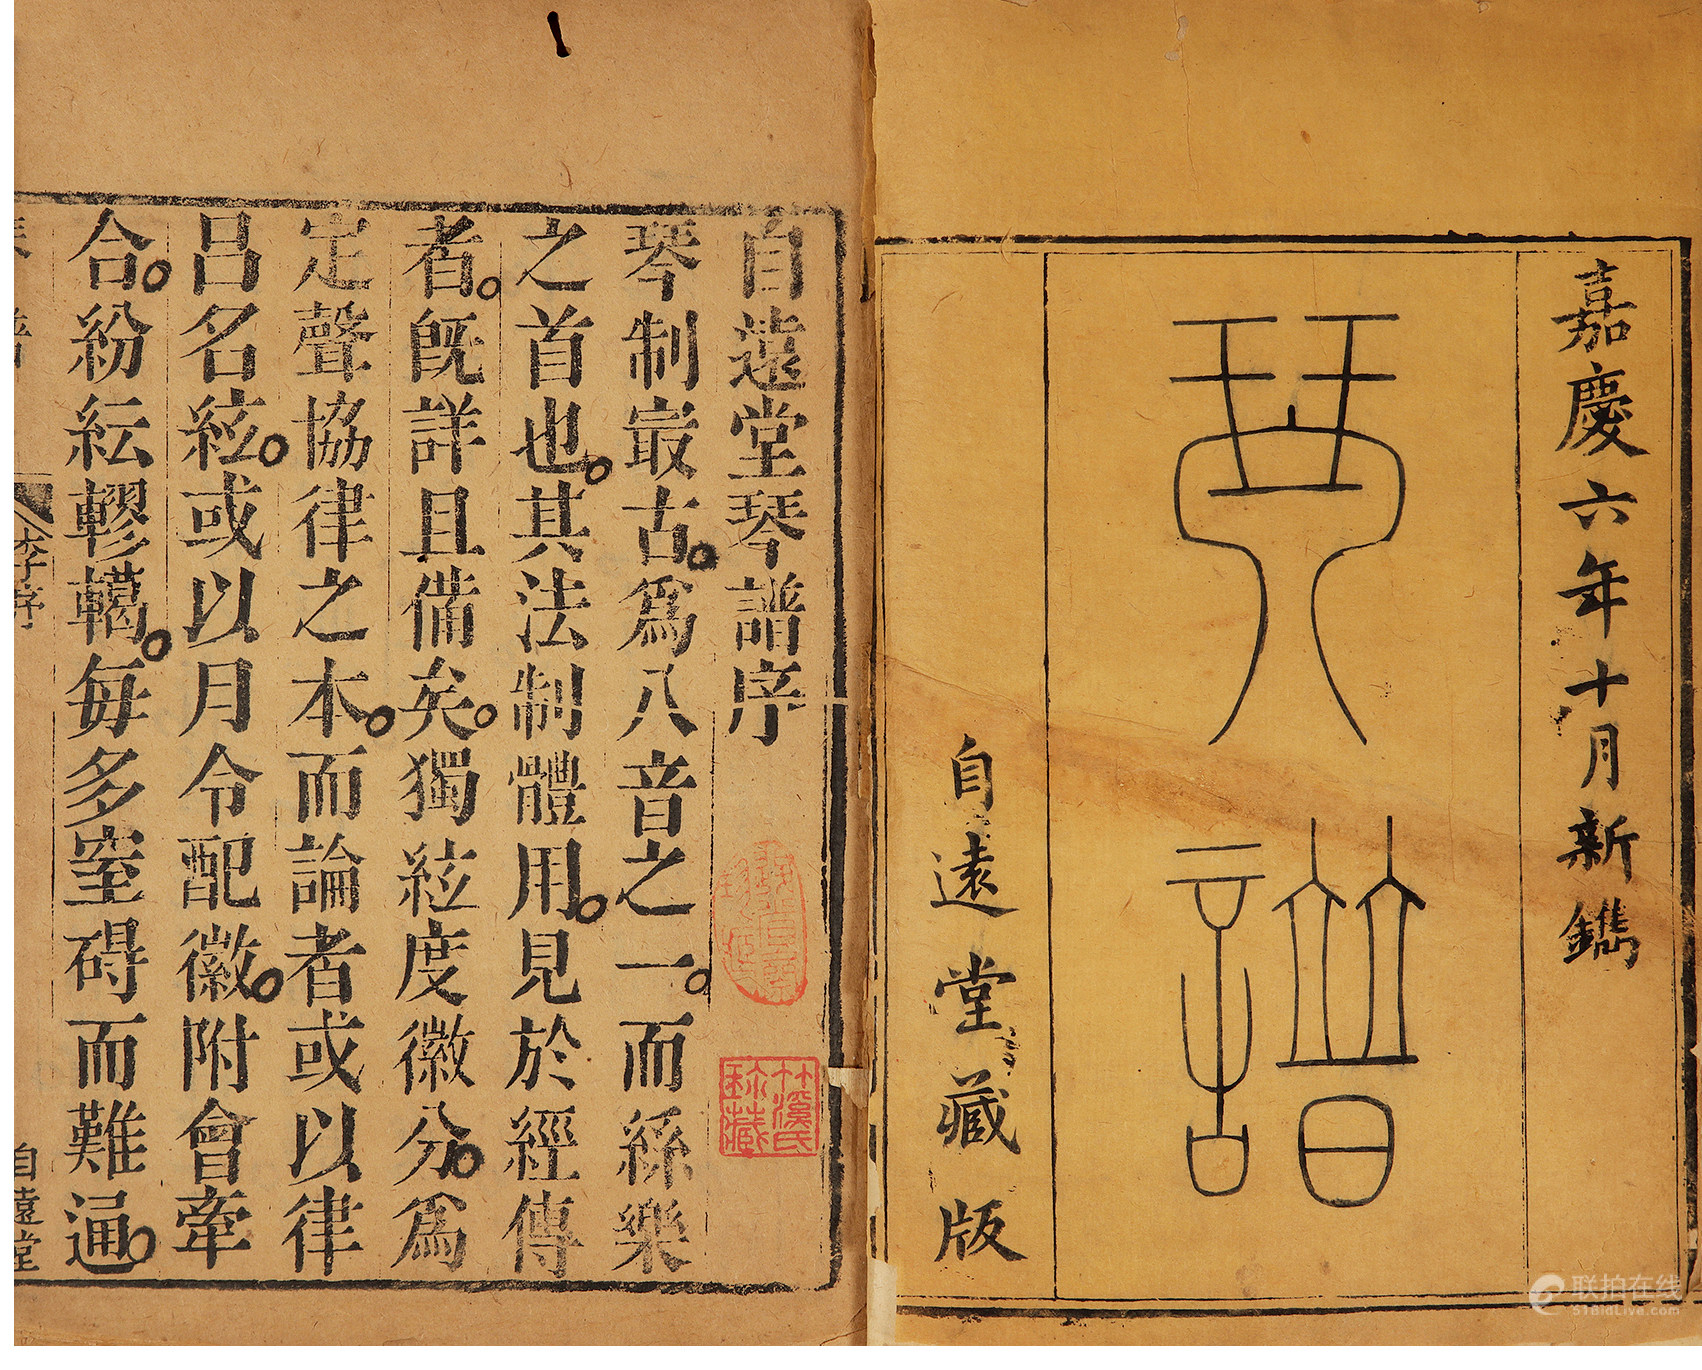 嘉慶六年十月新鐫
琴譜
自遠堂藏版
自遠堂琴譜序
琴制㝡古爲八音之一而絲樂
之首也其法制體用見於經傳
者旣詳且備矣獨絃度徽分爲
定聲協律之本而論者或以律
呂名絃或以月令配徽附會牽
合紛紜轇轕每多窒碍而難通
李序
自遠堂
竹溪氏
珍藏
联拍在线
518idLive.com